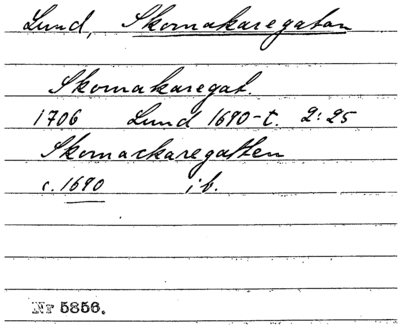 Lund, Skomakaregatan
Skomakaregat.
1706 Lund 1690-t. 2:25
Skomackaregatten
c. 1690 ib.
Nr 5856.